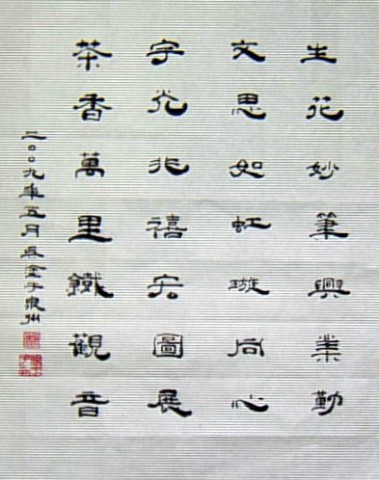 生花妙筆興業勤
文思如虹璇向心
字光兆禧宏圖展
茶香萬里鐵觀音
二〇〇九年五月吳金于泉州